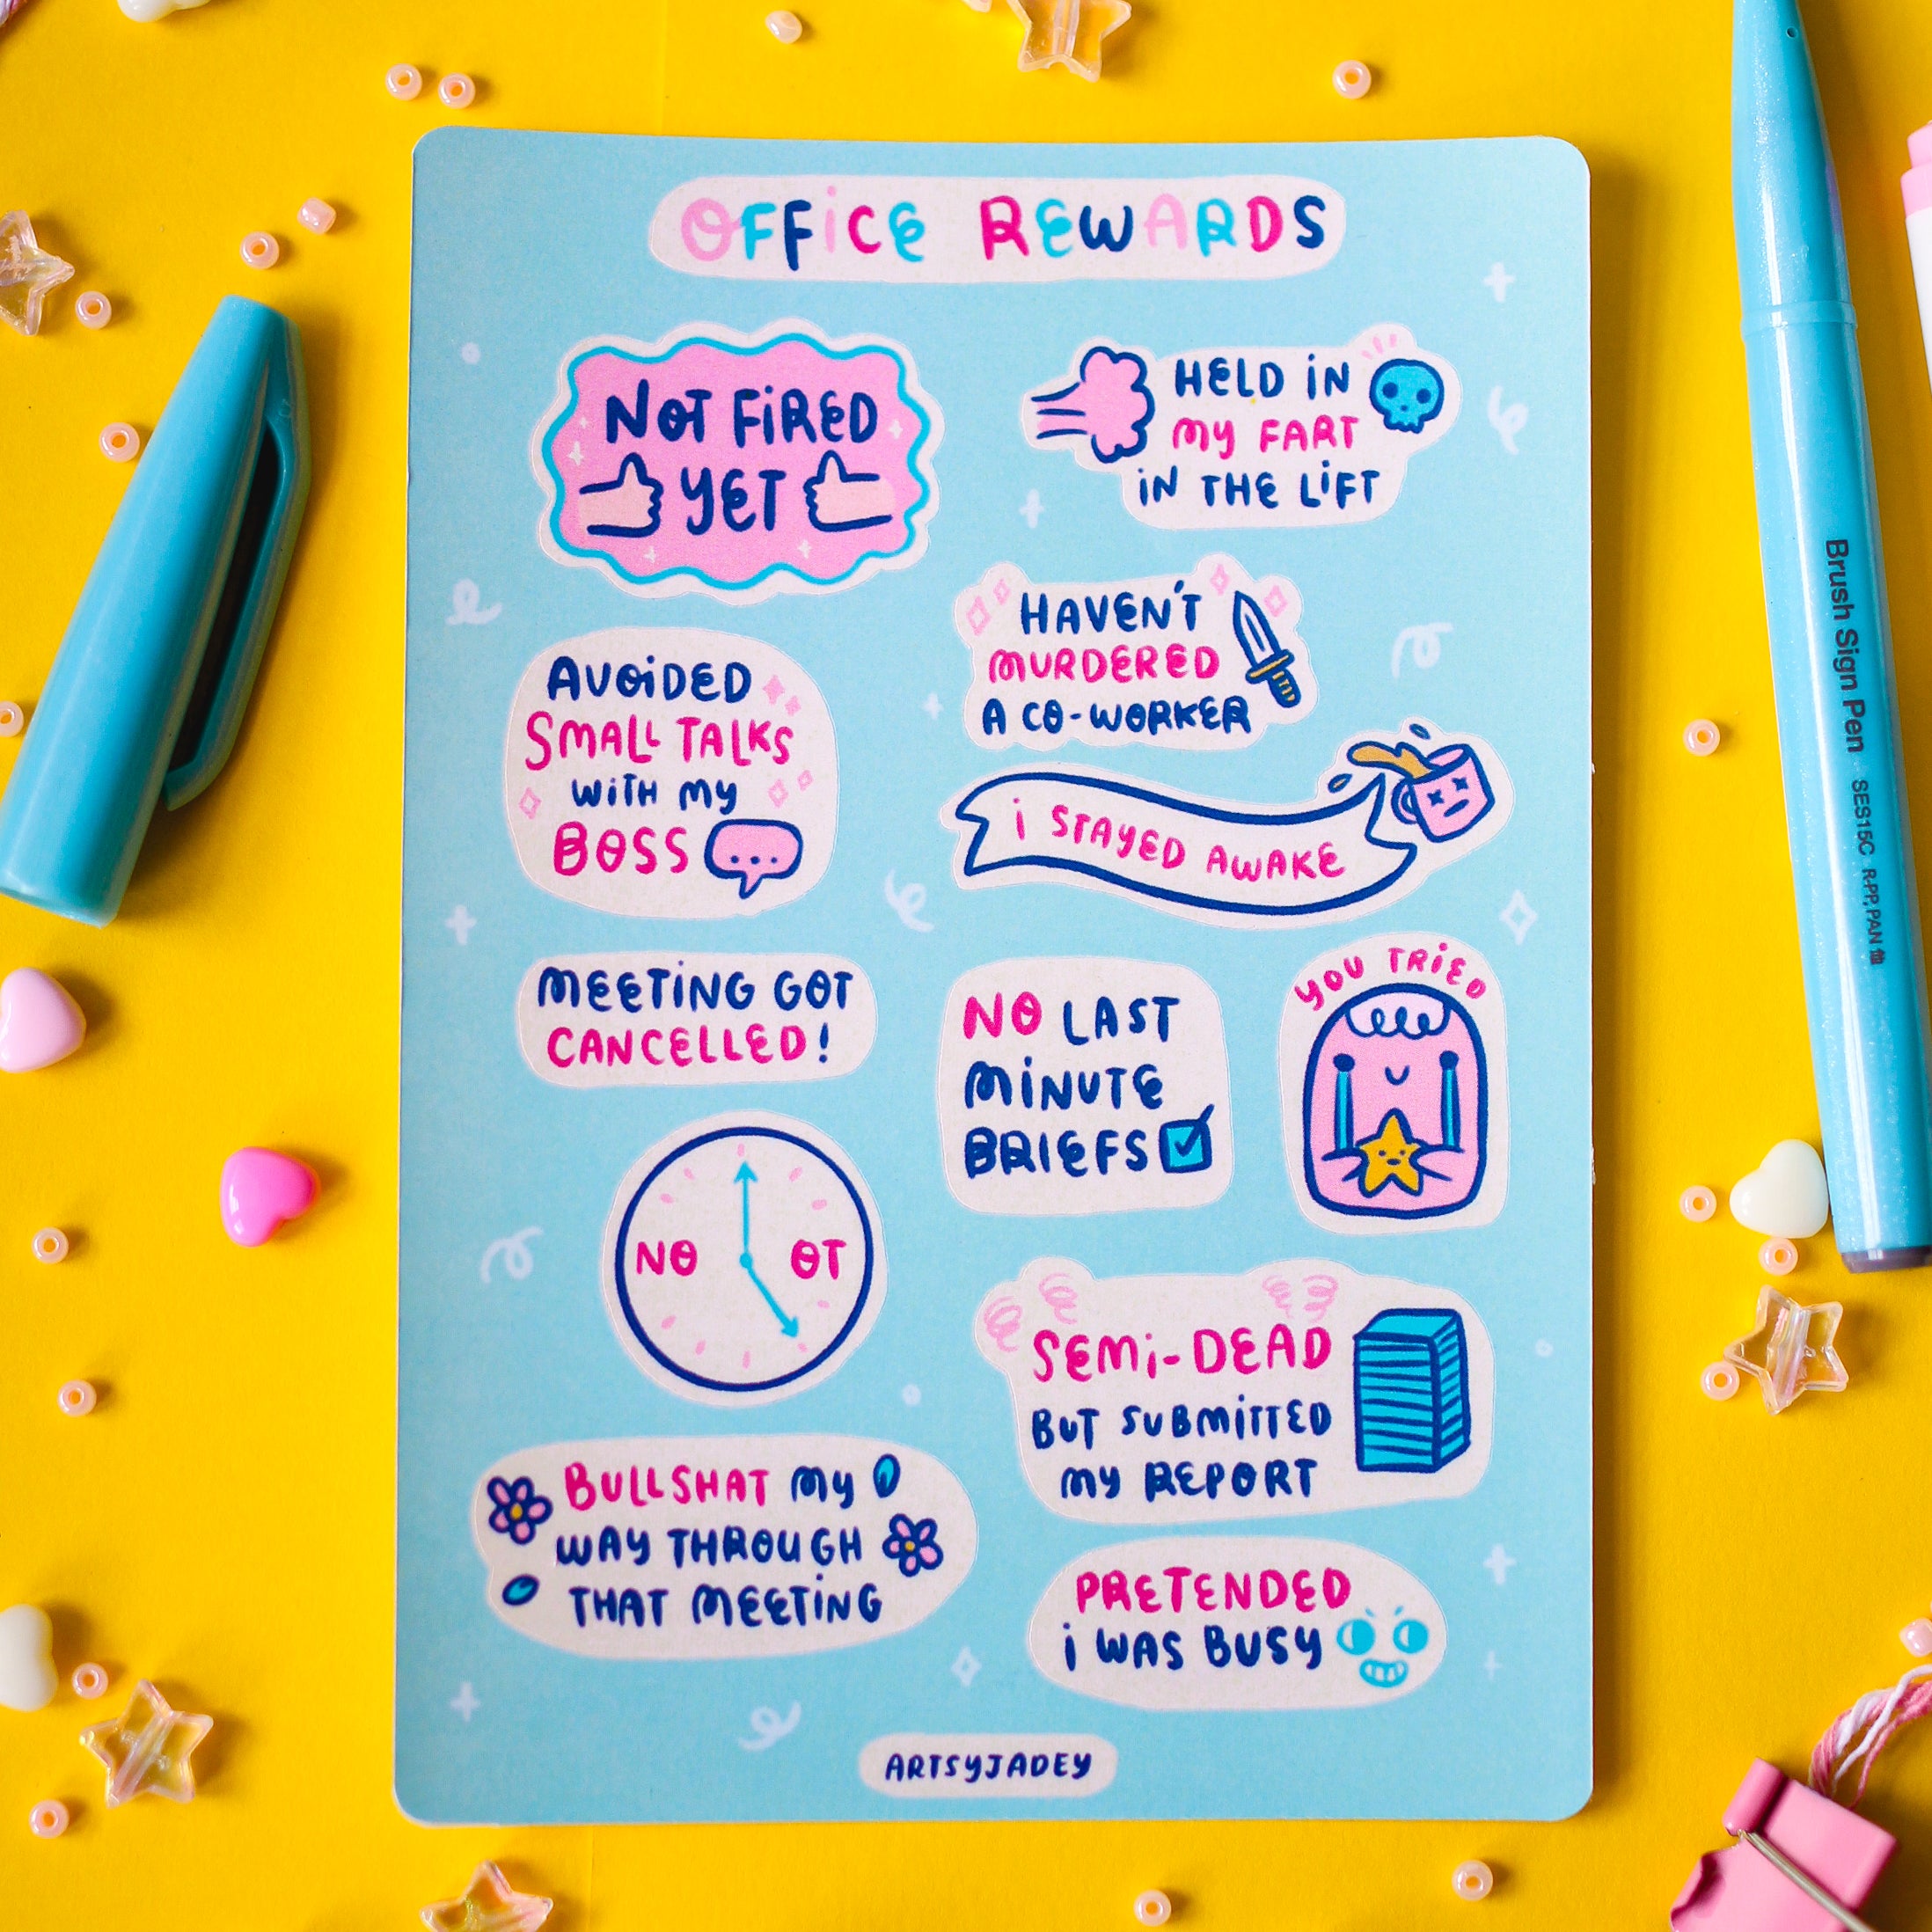 OFFICE REWARDS
NOT FIRED
YET
HELD IN
MY FART
IN THE LIFT
AVOIDED
SMALL TALKS
WITH MY
BOSS
HAVEN'T
MURDERED
A CO-WORKER
I STAYED AWAKE
MEETING GOT
CANCELLED!
NO LAST
MINUTE
BRIEFS
YOU TRIED
NO OT
SEMI-DEAD
BUT SUBMITTED
MY REPORT
BULLSHAT MY
WAY THROUGH
THAT MEETING
PRETENDED
I WAS BUSY
ARTSYJADEY
Brush Sign Pen SES15C R-PP,PAN